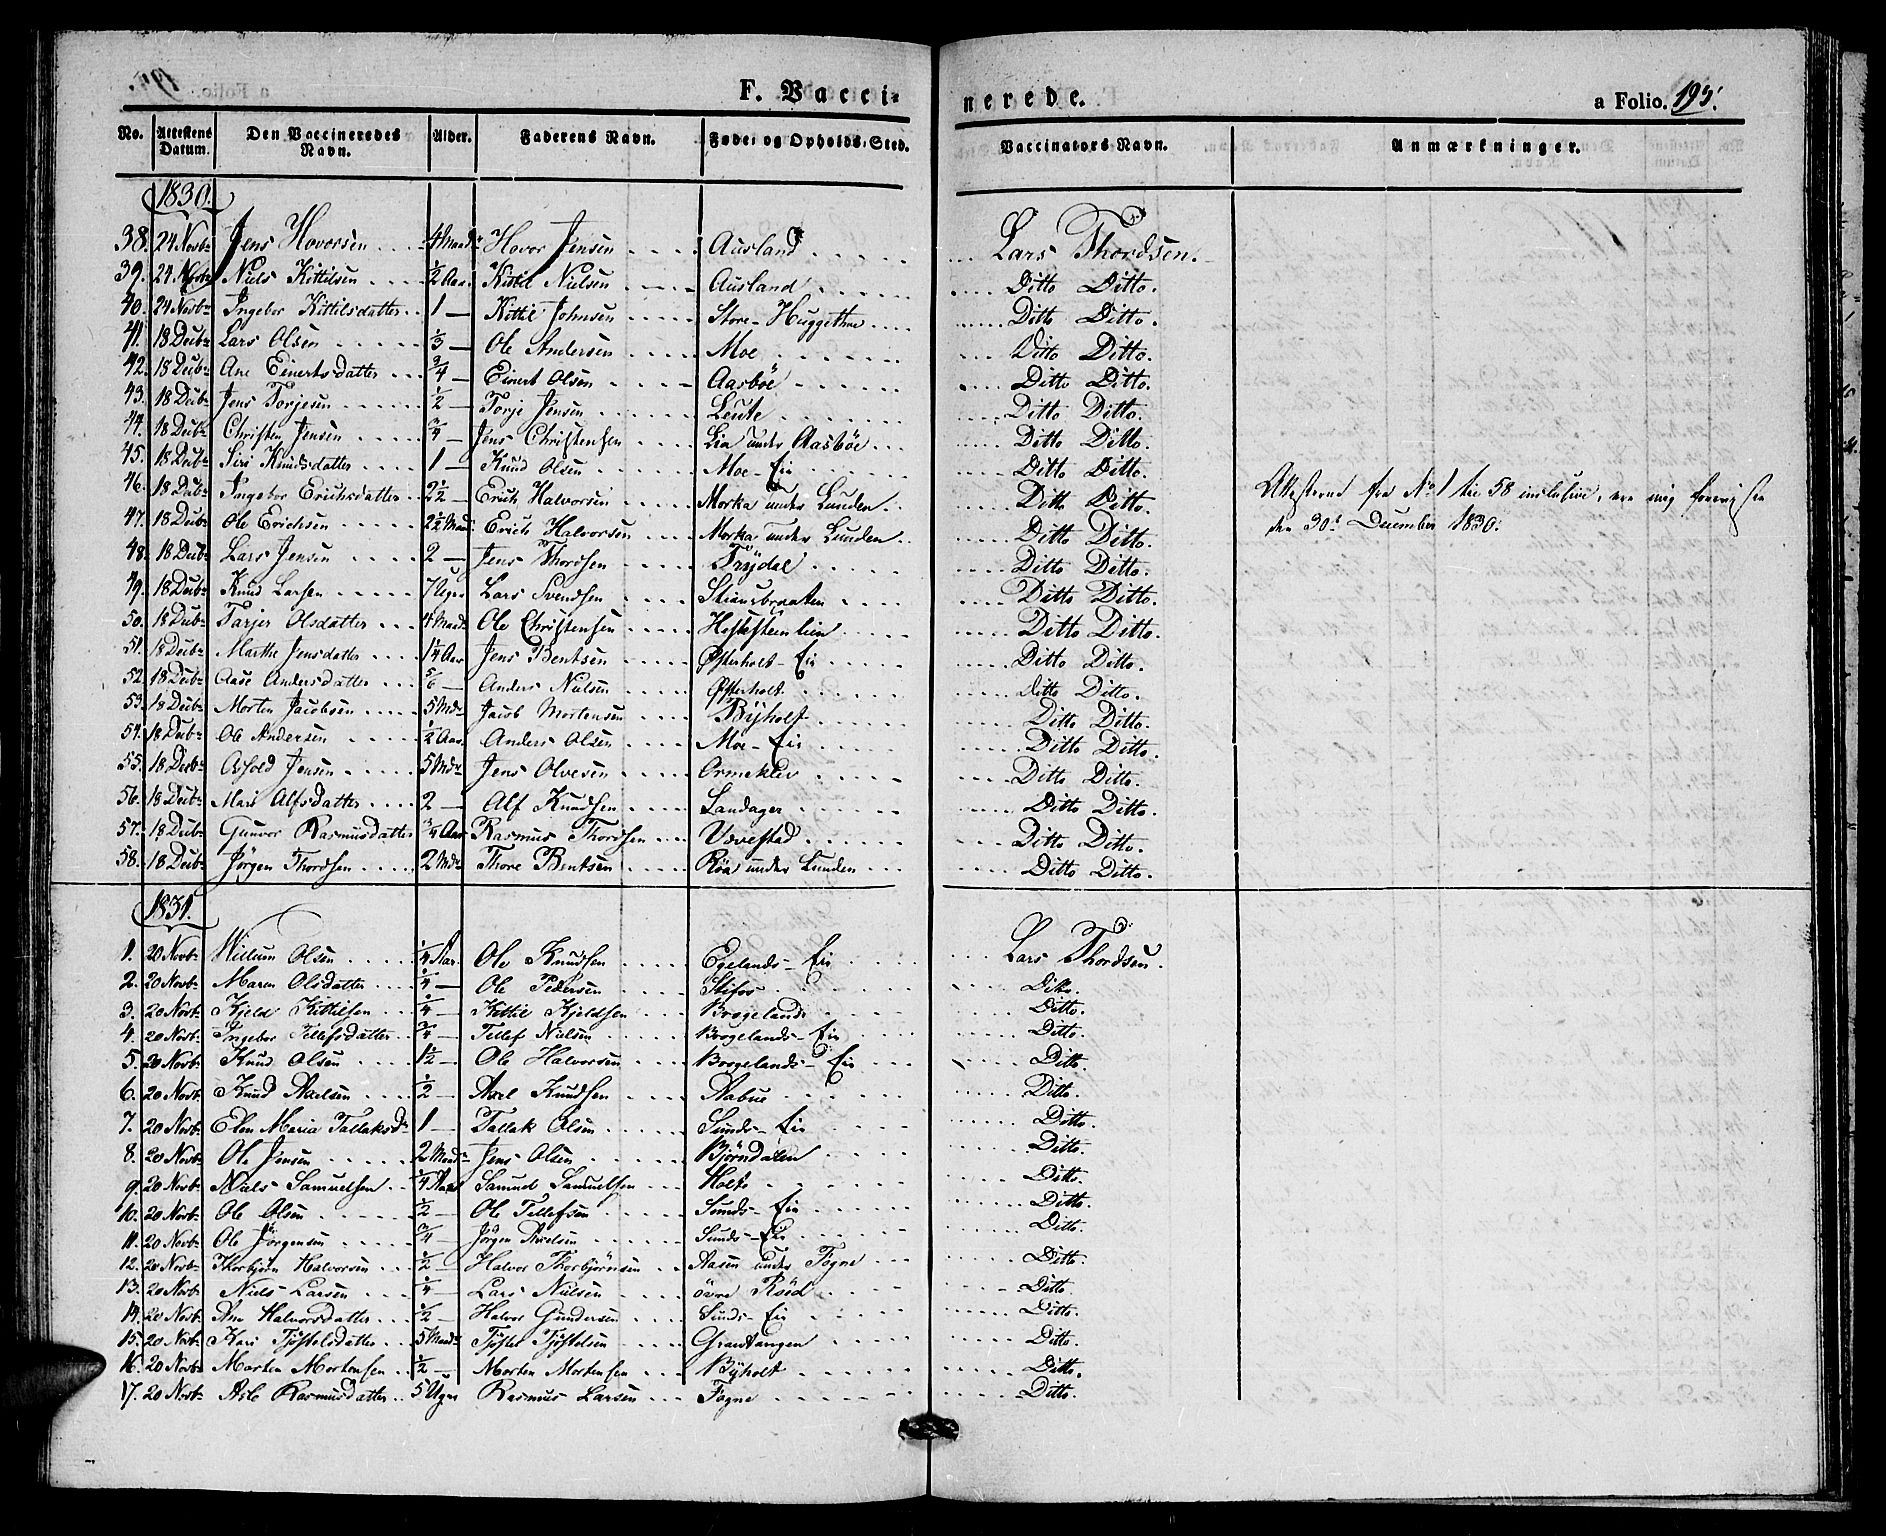 F. Vacci- nerede. a Folio. 195.
No. Attestens Datum. Den Vaccineredes Navn. Alder. Faderens Navn. Føde- og Opholds-Sted. Vaccinators Navn. Anmærkninger.
1830.
38. 24 Novbr Jens Hovorsen 4 Maadr Hovor Jensen Ausland Lars Thordsen.
39. 24 Novbr Niels Kittilsen ½ Aar Kittil Nielsen Ausland Ditto Ditto.
40. 24 Novbr Ingebor Kittilsdatter 1 — Kittil Johnsen Store- Ditto Ditto.
41. 18 Decbr Lars Olsen ⅓ — Ole Andersen Moe Ditto Ditto.
42. 18 Decbr Ane Einertsdatter ¾ — Einert Olsen Aasböe Ditto Ditto.
43. 18 Decbr Jens Torjesen ½ — Torje Jensen Leute Ditto Ditto.
44. 18 Decbr Christen Jensen ¾ — Jens Christensen Lia under Aasböe Ditto Ditto.
45. 18 Decbr Siri Knudsdatter 1 — Knud Olsen Moe-Eie Ditto Ditto.
46. 18 Decbr Ingebor Erichsdatter 2½ — Erich Halvorsen Morka under Lunden Ditto Ditto. Attesterne fra No 1 til 58 inclusive, ere mig foreviste
47. 18 Decbr Ole Erichsen 2½ Maadr Erich Halvorsen Morka under Lunden Ditto Ditto. den 30te December 1830.
48. 18 Decbr Lars Jensen 2 — Jens Thordsen Frydal Ditto Ditto.
49. 18 Decbr Knud Larsen 7 Uger Lars Svendsen Stiansbraaten Ditto Ditto.
50. 18 Decbr Tarjer Olsdatter 4 Maadr Ole Christensen Hestestemlien Ditto Ditto.
51. 18 Decbr Marthe Jensdatter 1¼ Aar Jens Bentsen Østerholt-Eie Ditto Ditto.
52. 18 Decbr Aase Andersdatter ⅚ — Anders Nielsen Østerholt Ditto Ditto.
53. 18 Decbr Morten Jacobsen 5 Mdr Jacob Mortensen Byholt Ditto Ditto.
54. 18 Decbr Ole Andersen ½ Aar Anders Olsen Moe-Eie Ditto Ditto.
55. 18 Decbr Jensen 5 Mdr Jens Olvesen Ormeklev Ditto Ditto.
56. 18 Decbr Mari Alfsdatter 2 — Alf Knudsen Landager Ditto Ditto.
57. 18 Decbr Gunvor Rasmusdatter ¾ Aar Rasmus Thordsen Vævestad Ditto Ditto.
58. 18 Decbr Jörgen Thordsen 2 Mdr Thore Bentsen Röa under Lunden Ditto Ditto.
1831.
1. 20 Novbr Willum Olsen ¼ Aar. Ole Knudsen Egelands-Eie Lars Thordsen.
2. 20 Novbr Maren Olsdatter ¼ — Ole Pedersen Stifos Ditto.
3. 20 Novbr Kjeld Kittilsen ¼ — Kittil Kjeldsen Brogeland Ditto.
4. 20 Novbr Ingebor Tellefsdatter ¾ — Tellef Nielsen Brogelands-Eie Ditto.
5. 20 Novbr Knud Olsen 1½ — Ole Halvorsen Brogelands-Eie Ditto.
6. 20 Novbr Knud Axelsen ½ — Axel Knudsen Aabue Ditto.
7. 20 Novbr Elen Maria Tallaksdr 1 — Tallak Olsen Sunds-Eie Ditto.
8. 20 Novbr Ole Jensen 2 Maadr Jens Olsen Björndalen Ditto.
9. 20 Novbr Niels Samuelsen ¼ Aar Samuel Samuelsen Holte Ditto.
10. 20 Novbr Ole Olsen ½ — Ole Tellefsen Sunds-Eie Ditto.
11. 20 Novbr Ole Jörgensen ¾ — Jörgen Axelsen Sunds-Eie Ditto.
12. 20 Novbr Thorbjörn Halvorsen ½ — Halvor Thorbjörnsen Aasen under Fogne Ditto.
13. 20 Novbr Niels Larsen ¼ — Lars Nielsen övre Röed Ditto.
14. 20 Novbr Ane Halvorsdatter ½ — Halvor Gundersen Sunds-Eie Ditto.
15. 20 Novbr Kari Tjöstelsdatter 5 Maadr Tjöstel Tjöstelsen Grantangen Ditto.
16. 20 Novbr Morten Mortensen ½ — Morten Mortensen Byholt Ditto.
17. 20 Novbr Rasmusdatter 5 Uger Rasmus Larsen Fogne Ditto.